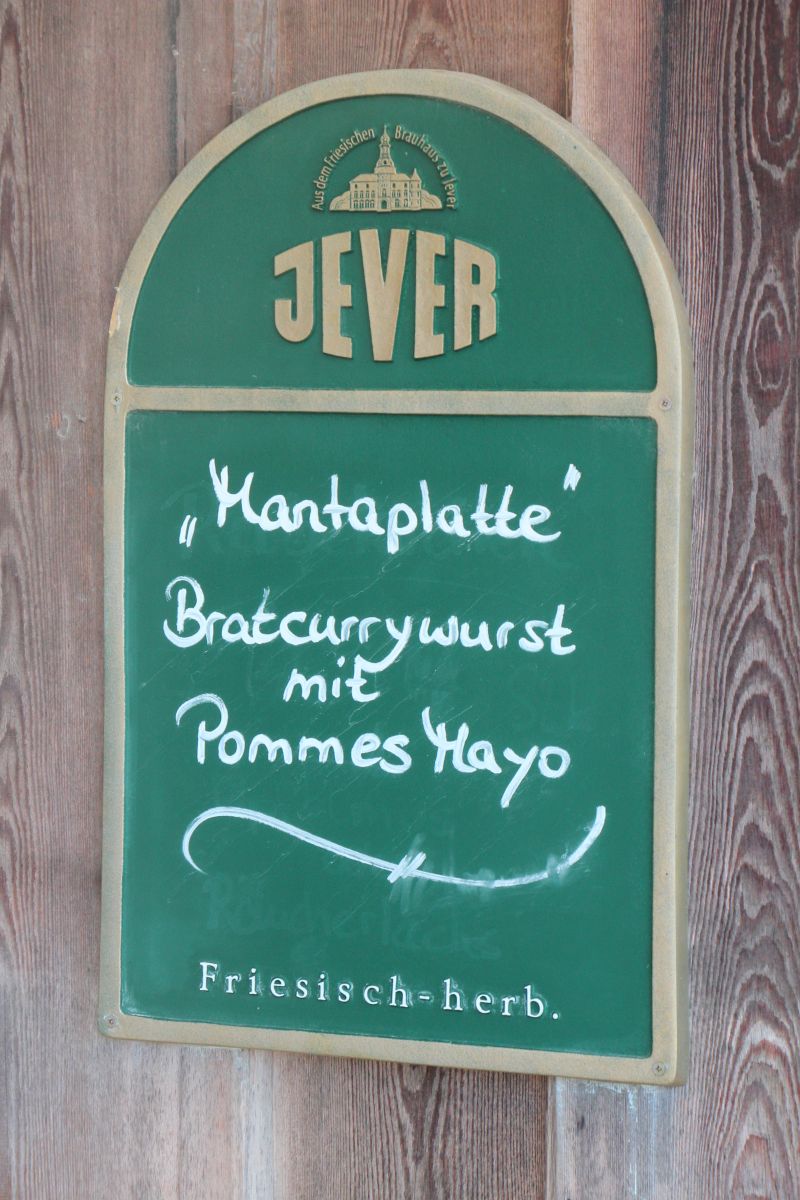 Aus dem Friesischen Brauhaus zu Jever
JEVER
„Mantaplatte"
Bratcurrywurst
mit
Pommes Mayo
Friesisch-herb.